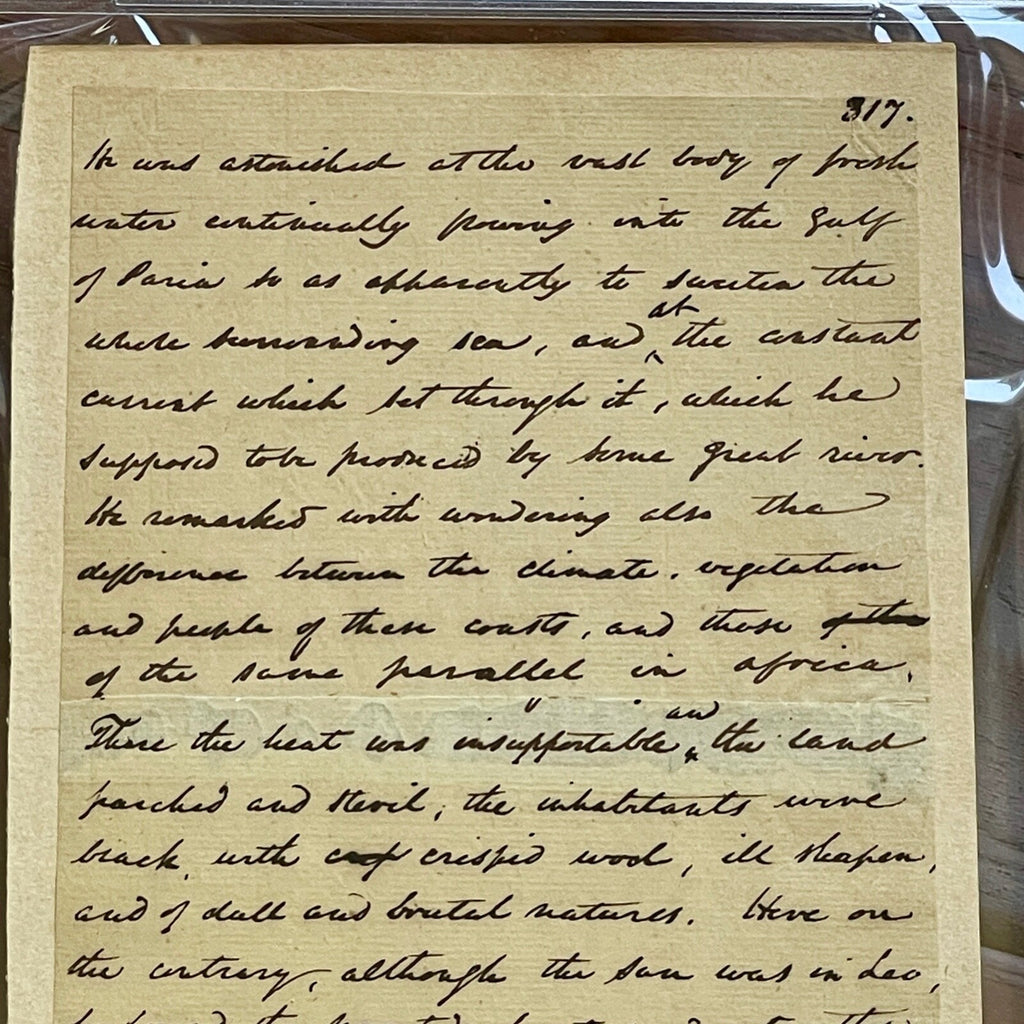 317.
He was astonished at the vast body of fresh
water continually flowing into the Gulf
of Paria so as apparently to sweeten the
whole surrounding sea, and at the constant
current which set through it, which he
supposed to be produced by some great river.
He remarked with wondering also the
difference between the climate, vegetation
and people of these coasts, and those of the
of the same parallel in africa.
There the heat was insupportable, and the land
parched and steril, the inhabitants were
black, with crisped wool, ill shapen,
and of dull and brutal natures. Here on
the contrary, although the sun was in Leo,